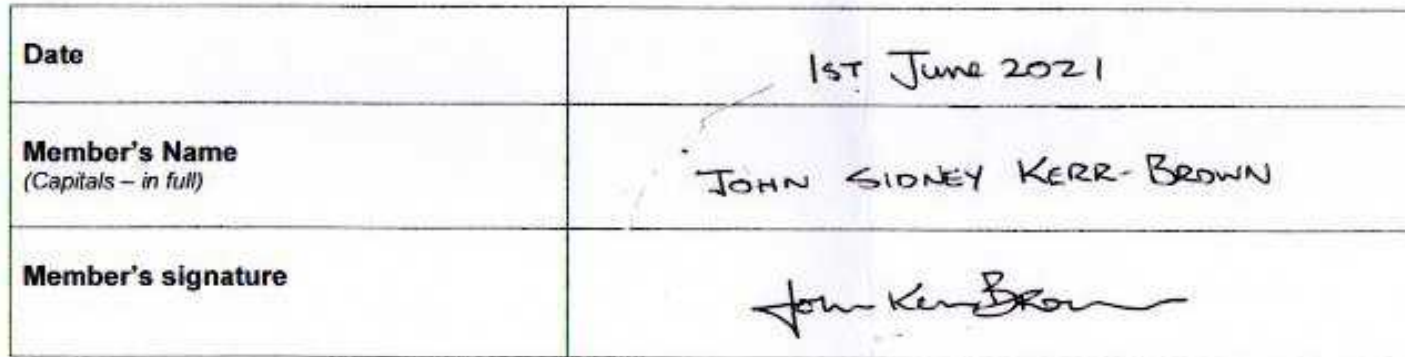 Date
1ST June 2021
Member's Name
(Capitals – in full)
JOHN SIDNEY KERR-BROWN
Member's signature
John Kerr Brown